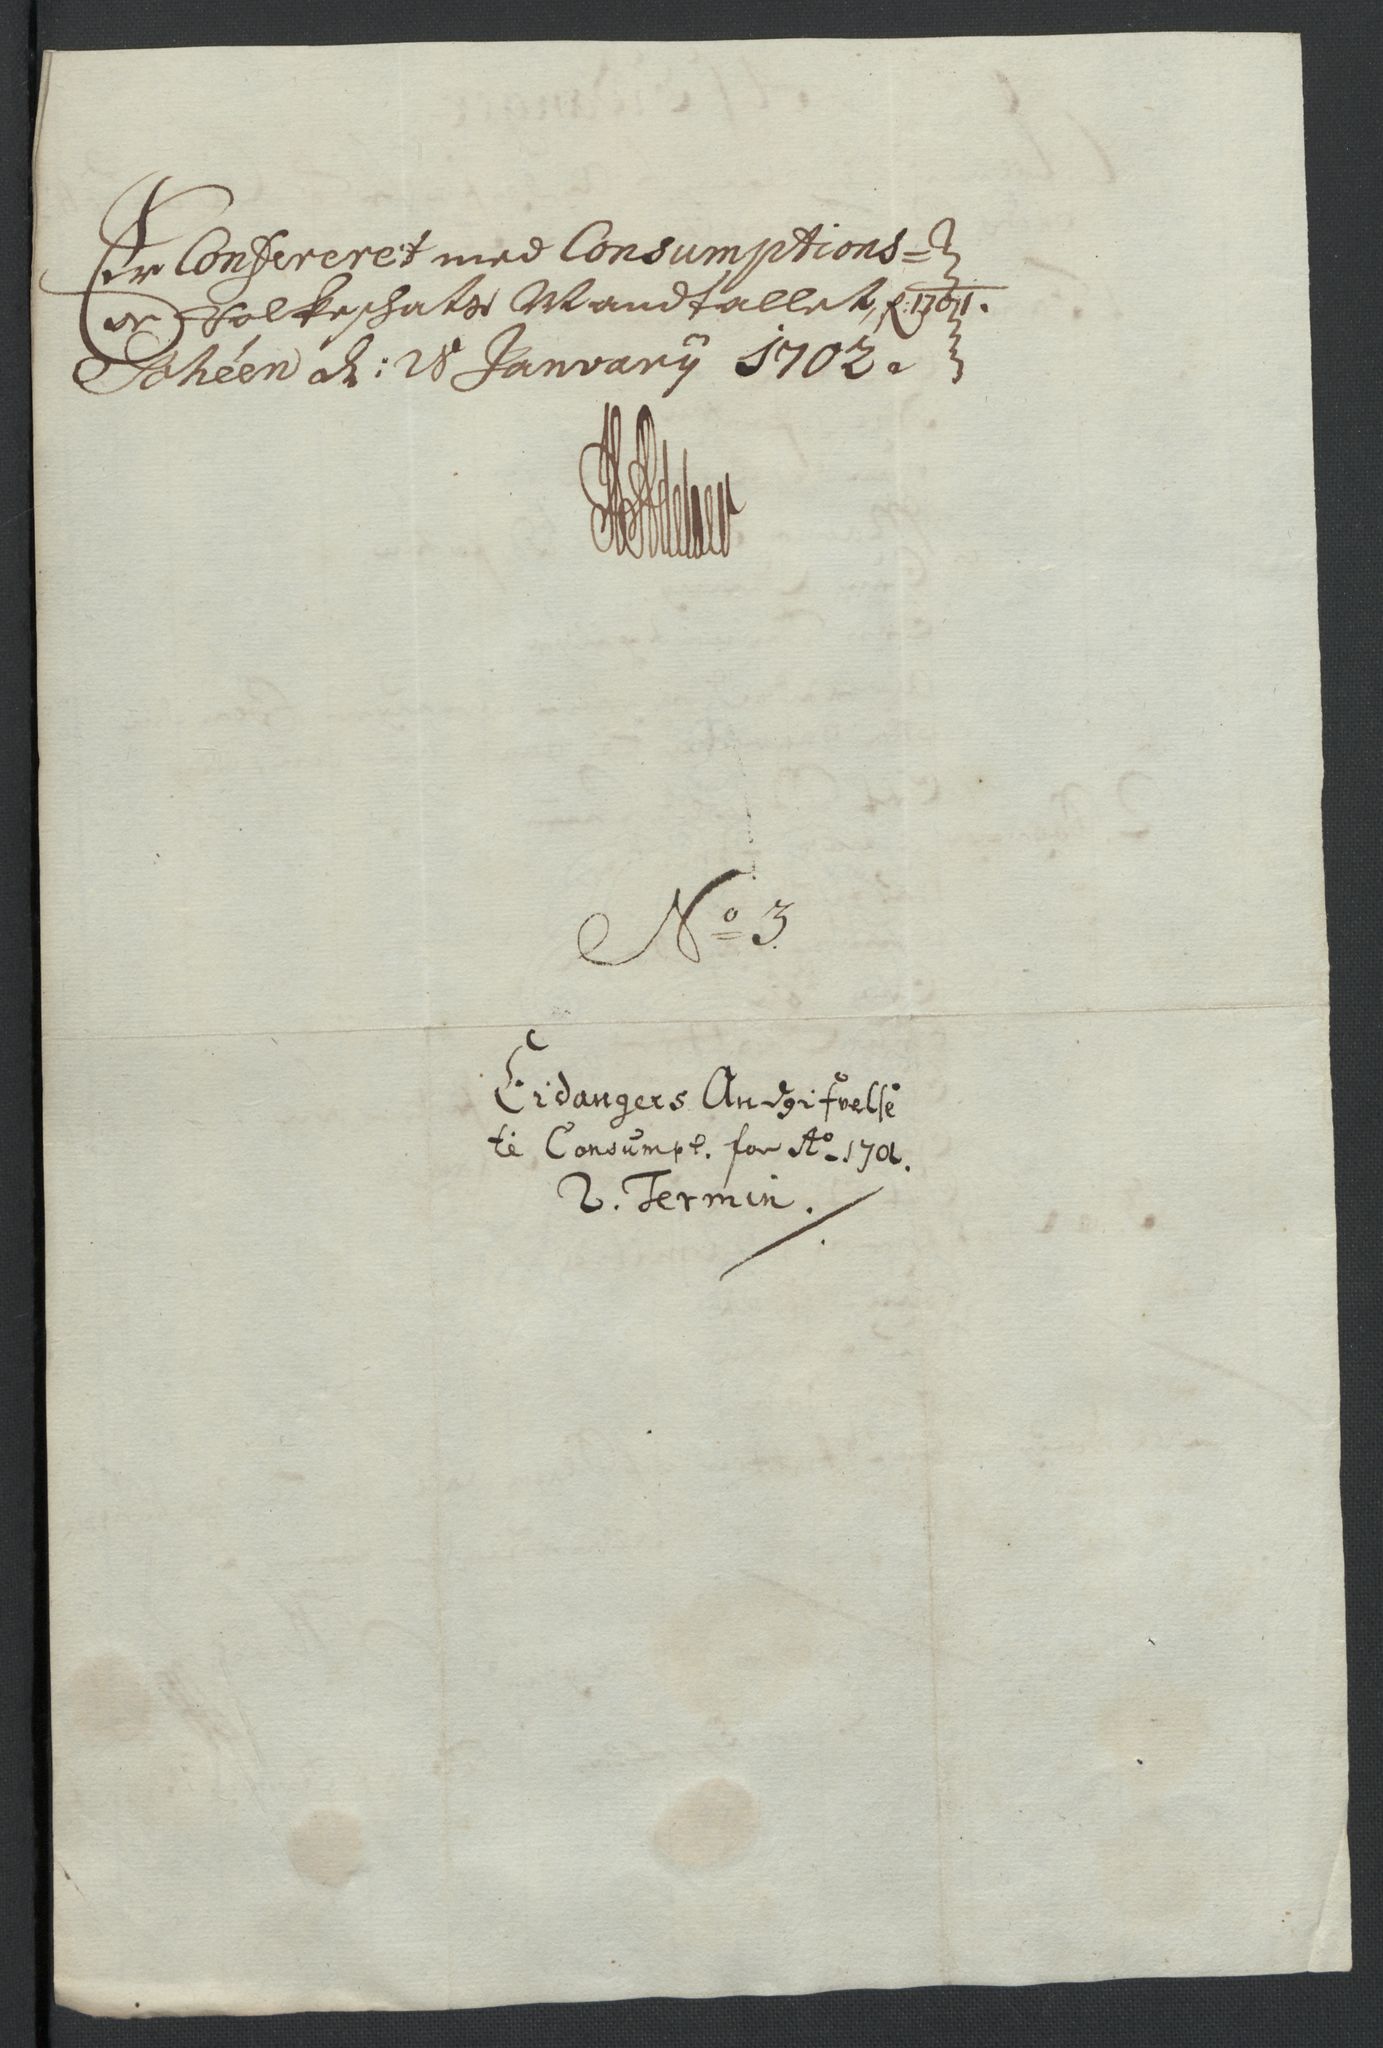 Er Confereret med Consumptions=
og Folkeschats Mandtallet, p: 1701.
Schéen d: 28 Januarij 1702.
No 3
Eidangers Andgifvelse
til Consumpt. for Ao. 1701.
2. Termin.